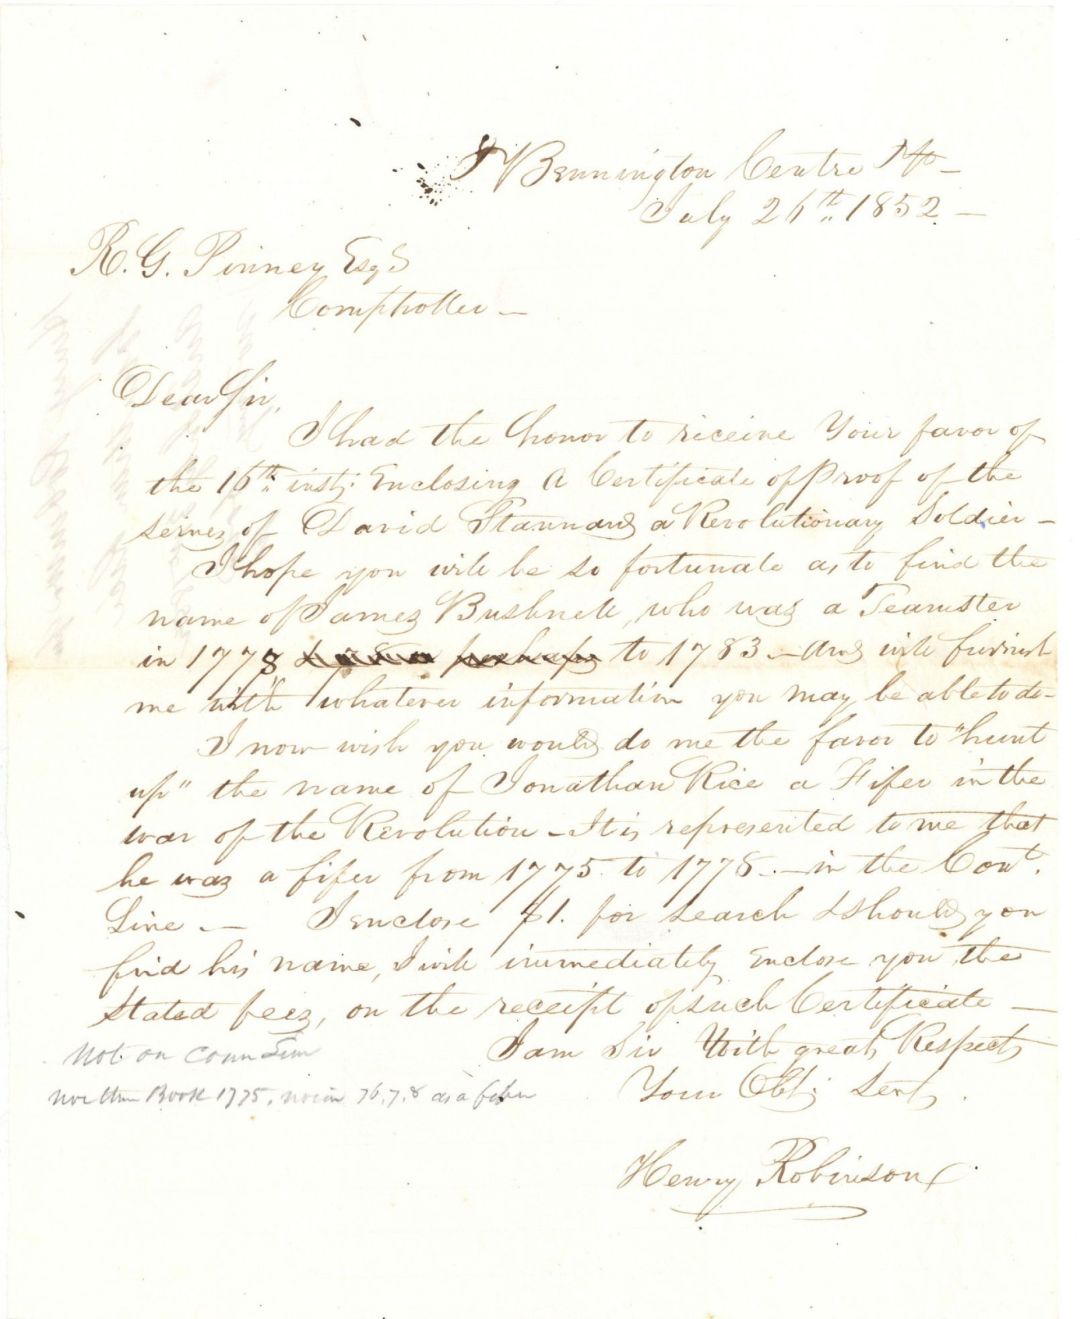 Bennington Centre Vt –
July 26th 1852 –
R. G. Pinney Esqr
Comptroller –
Dear Sir,
I had the honor to receive Your favor of
the 16th inst; Enclosing a Certificate of Proof of the
serves of David Stannard a Revolutionary Soldier –
I hope you will be so fortunate as to find the
name of James Bushnell, who was a Teamster
in 1778 to 1783 – And will furnish
me with whatever information you may be able to do –
I now wish you would do me the favor to "hunt
up" the name of Jonathan Rice a Fifer in the
war of the Revolution – It is represented to me that
he was a fifer from 1775 to 1778 – in the Cont.
Line – I enclose $1. for search & should you
find his name, I will immediately Enclose you the
Stated fees, on the receipt of such Certificate –
I am Sir With great Respect,
Your Obt; Sert,
Henry Robinson
Not on Conn Line
nor Book 1775, nor in 76,7,8 as a fifer